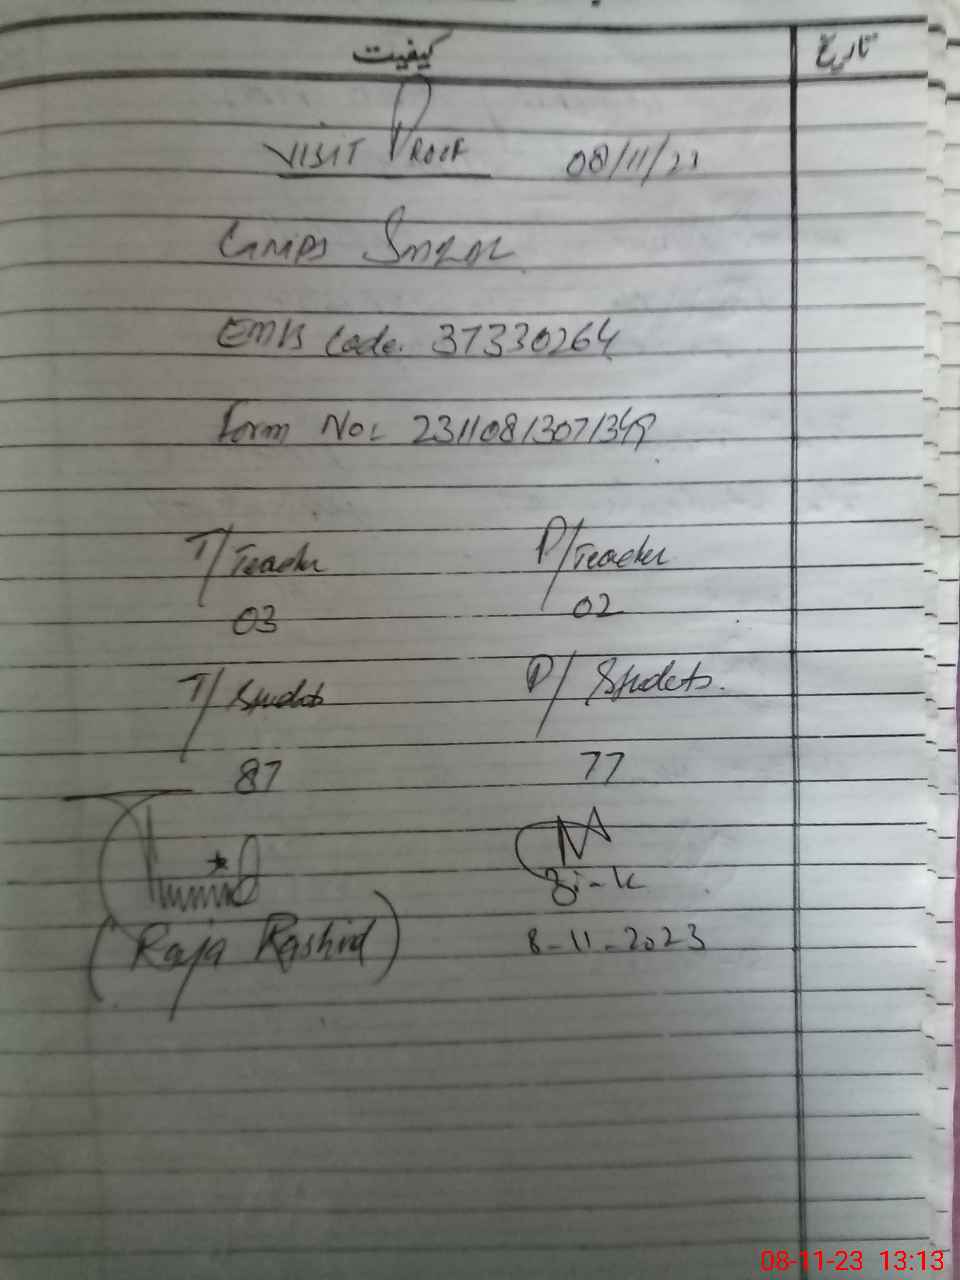 کیفیت تاریخ
VISIT PROOF 08/11/23
GMPS
EMIS Code. 37330264
Form No: 23110813071349
T/Teacher P/Teacher
03 02
T/Students P/Students.
87 77
(Raja Rashid) 8-11-2023
08-11-23 13:13